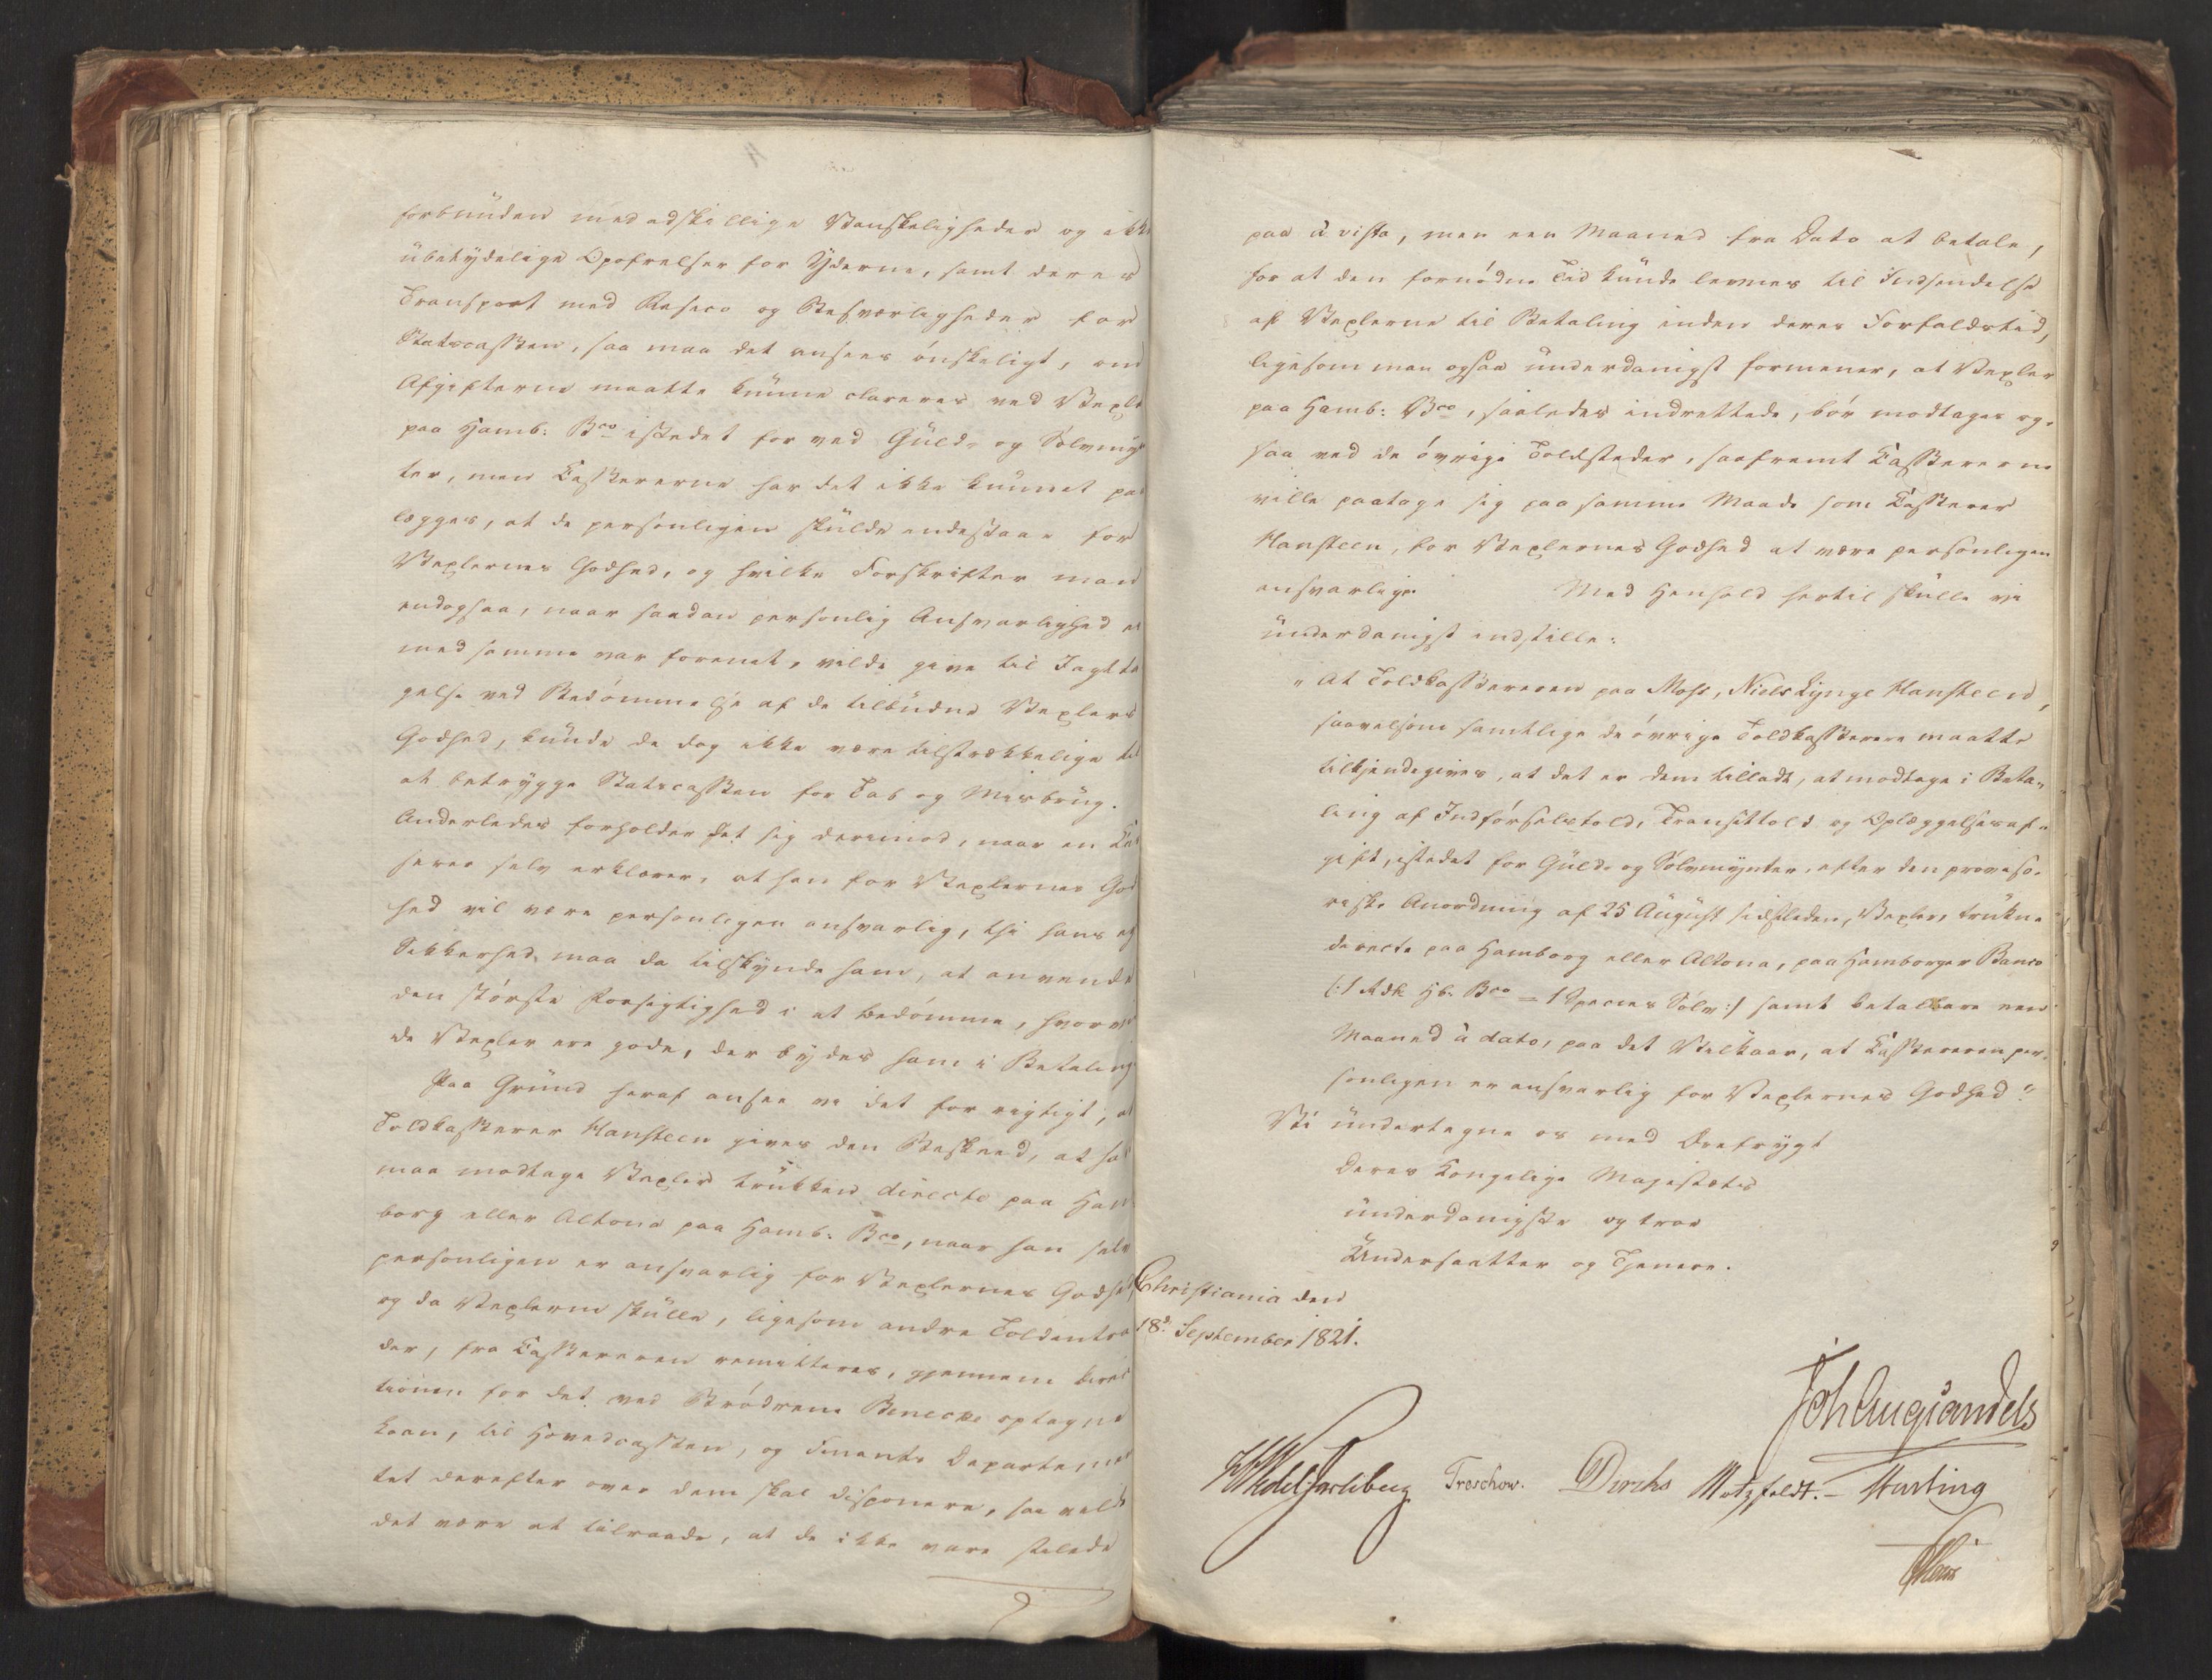 forbunden med adskillige Vanskeligheder og ikke
ubetydelige Opofrelser for Yderne, samt deres
Transport med Resico og Besværligheder for
Statscassen, saa maa det ansees ønskeligt, om
Afgifterne maatte kunne clareres ved Vexle
paa Hamb: Bco istedet for ved Guld- og Sølvmyn
ter, men Casserererne har det ikke kunnet paa
lægges, at de personligen skulde indestaae for
Vexlernes Godhed, og hvilke Forskrifter man
endogsaa, naar saadan personlig Ansvarlighed ei
med samme var forenet, vilde give til Iagtta
gelse ved Bedømmelse af de tilbudne Vexlers
Godhed, kunde de dog ikke være tilstrækkelige til
at betrygge Statscassen for Tab og Misbrug.
Anderledes forholder det sig derimod, naar en Cas
serer selv erklærer, at han for Vexlernes God
hed vil være personligen ansvarlig, thi hans eg
Sikkerhed maa da tilskynde ham, at anvende
den største Forsigtighed i at bedømme, hvorvi
de Vexler ere gode, der bydes ham i Betaling
Paa Grund heraf ansee vi det for rigtigt, at
Toldkasserer Hansteen gives den Beskeed, at han
maa modtage Vexler trukken directe paa Ham
borg eller Altona paa Hamb: Bco, naar han selv
personligen er ansvarlig for Vexlernes Godhed,
og da Vexlerne skulle, ligesom andre Toldintra
der, fra Cassereren remitteres, gjennem Direc
tionen for det ved Brødrene Benecke optagne
Laan, til Hovedcassen, og Finants Departemen
tet derefter over dem skal disponere, saa vilde
det være at tilraade, at de ikke vare stilede
paa à vista, men een Maaned fra Dato at betale,
for at den fornødne Tid kunde levnes til Indsendelse
af Vexlerne til Betaling inden deres Forfaldstid,
ligesom man ogsaa underdanigst formener, at Vexler
paa Hamb: Bco, saaledes indrettede, bør modtages og-
saa ved de øvrige Toldsteder, saafremt Casserererne
ville paatage sig paa samme Maade som Casserer
Hansteen, for Vexlernes Godhed at være personligen
ansvarlige. Med Henhold hertil skulle vi
underdanigst indstille:
"At Toldkassereren paa Moss, Niels Lynge Hansteen,
saavelsom samtlige de øvrige Toldkasserere maatte
tilkjendegives, at det er dem tilladt, at modtage i Beta-
ling af Indførselstold, Transittold og Oplæggelsesaf-
gift, istedet for Guld- og Sølvmynter, efter den proviso-
riske Anordning af 25 August sidstleden, Vexler, trukne
directe paa Hamborg eller Altona, paa Hamborger Banco
(:1 Rdlr Hb. Bco = 1 Species Sølv:) samt betalbare een
Maaned à dato, paa det Vilkaar, at Cassereren per-
sonligen er ansvarlig for Vexlernes Godhed."
Vi undertegne os med Ærefrygt
Deres Kongelige Majestæts
underdanigste og troe
Undersaatter og Tjenere.
Christiania den
18d. September 1821.
Joh Aug Sandels
Wedel Jarlsberg Treschow. Diriks Motzfeldt. – Hasting